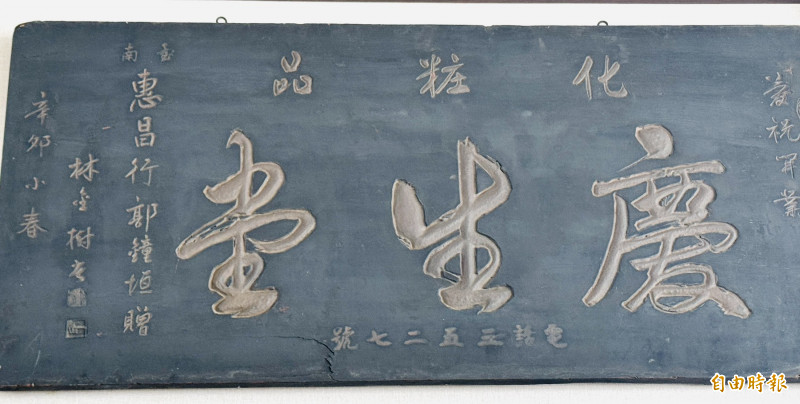 慶祝開業
化粧品
慶生堂
電話三五二七號
台南
惠昌行郭鐘垣贈
林金樹書
辛卯小春
自由時報